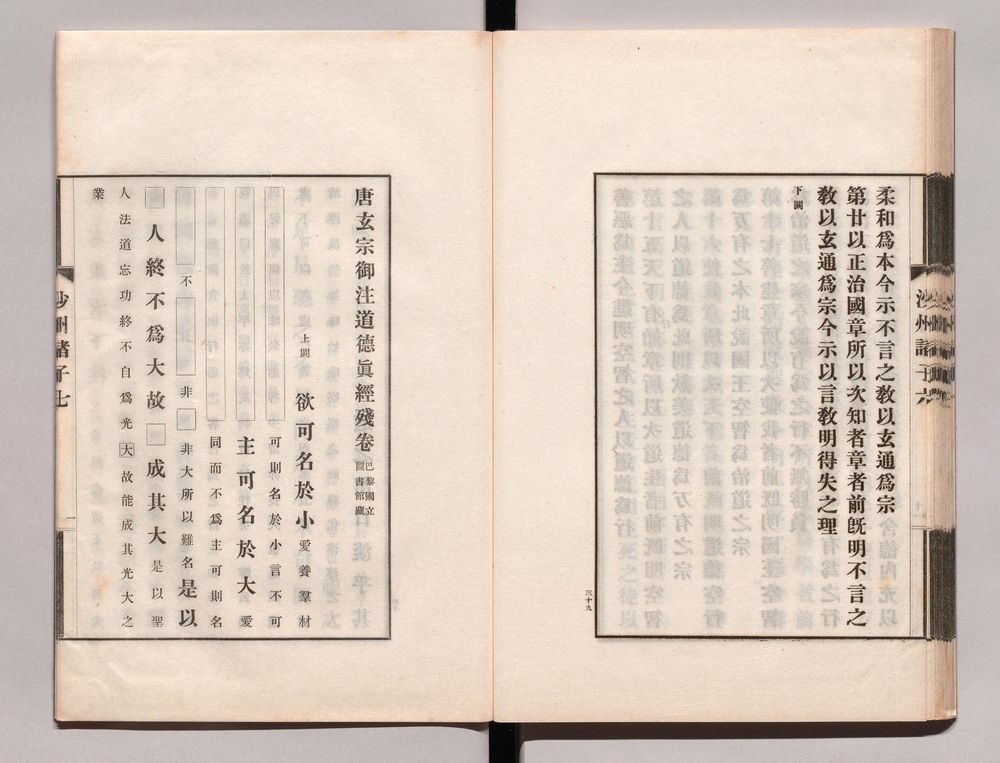 柔和爲本今示不言之敎以玄通爲宗
第廿以正治國章所以次知者章者前旣明不言之
敎以玄通爲宗今示以言敎明得失之理
下闕
三十九
沙州諸子六
唐玄宗御注道德眞經殘卷 巴黎國立圖書館藏
上闕 欲可名於小 愛養羣材
可則名於小言不可
主可名於大 愛
同而不爲主可則名
不 非 非大所以難名 是以
人終不爲大故 成其大 是以聖
人法道忘功終不自爲光大故能成其光大之
業
沙州諸子七
一